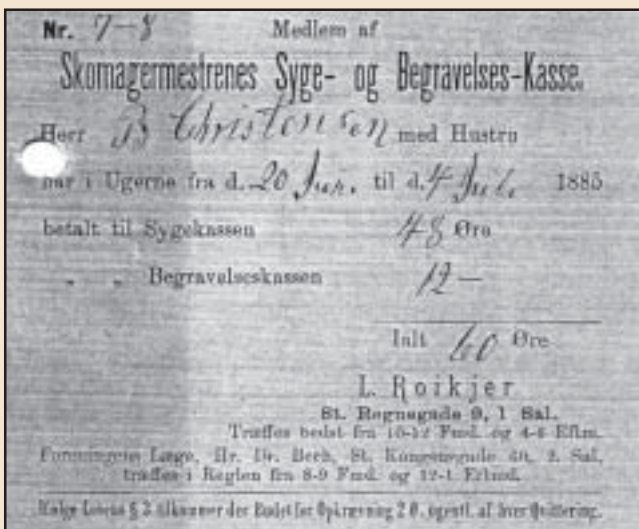 Nr. 7-8 Medlem af
Skomagermestrenes Syge- og Begravelses-Kasse.
Herr B Christensen med Hustru
har i Ugerne fra d. 20 Jun. til d. 4 Jul. 1885
betalt til Sygekassen 48 Øre
" " Begravelseskassen 12 —
Ialt 60 Øre
L. Roikjer
St. Regnegade 9, 1 Sal.
Træffes bedst fra 10-12 Fmd. og 4-6 Eftm.
Foreningens Læge, Hr. Dr. Bech, St. Kongensgade 40, 2. Sal,
træffes i Reglen fra 8-9 Fmd. og 12-1 Eftmd.
Ifølge Lovens § 3 tilkommer der Budet for Opkrævning 2 Ø. ugentl. af hver Qvittering.